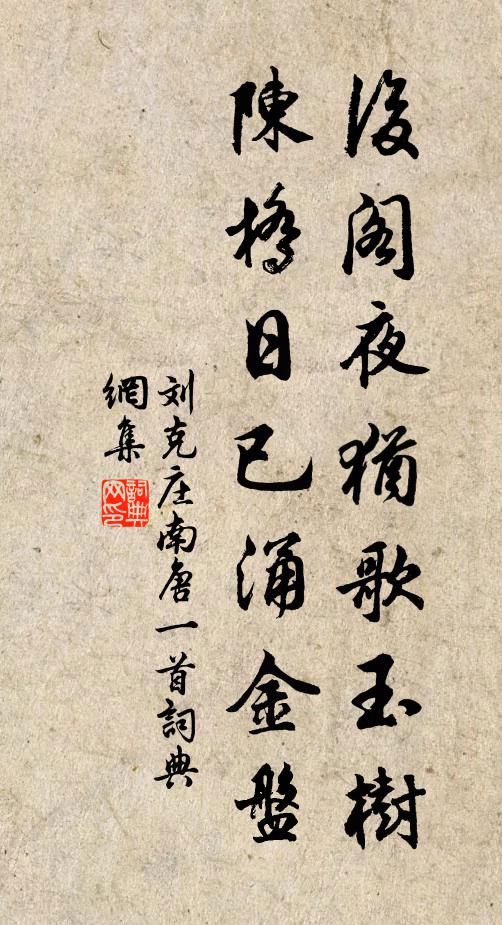 後阁夜猶歌玉樹
陳橋日已涌金盤
刘克庄南唐一首詞典
網集
詞典網印